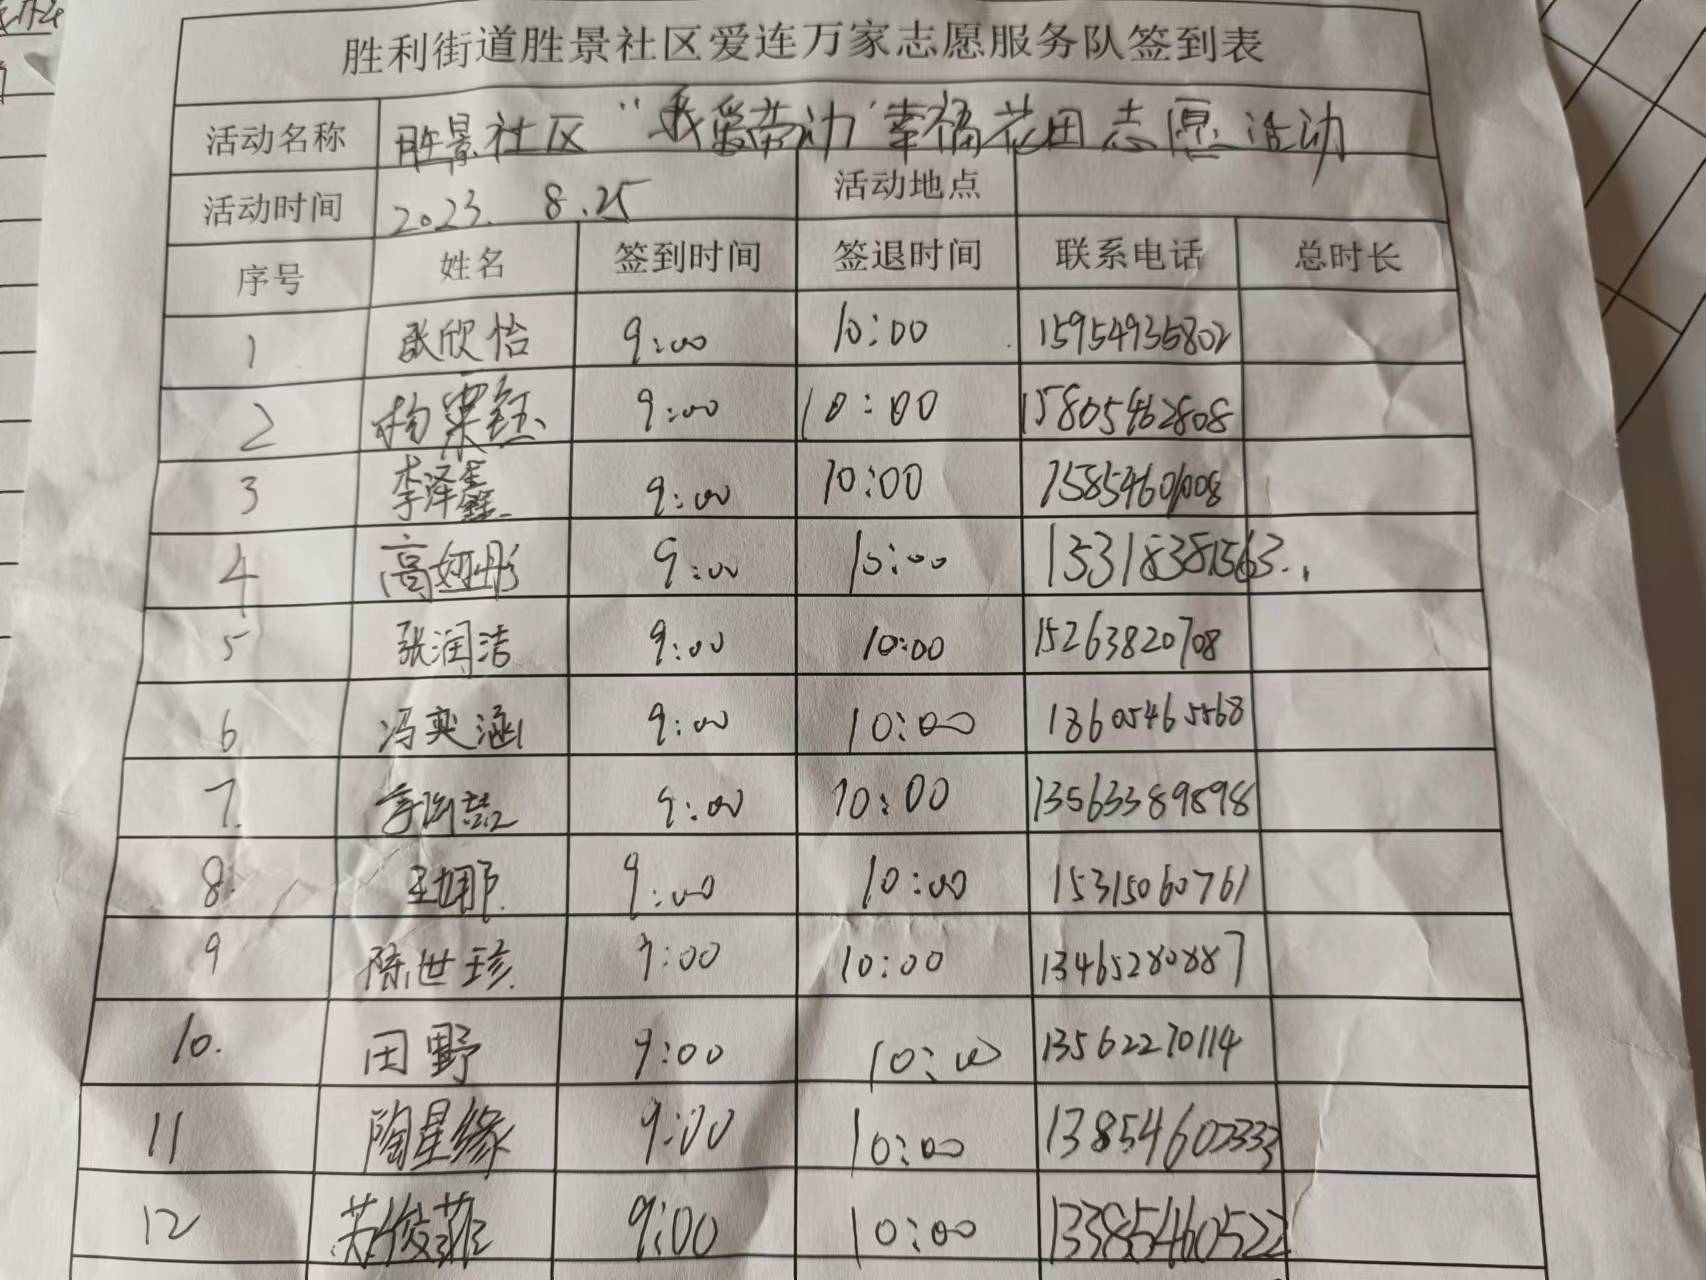 胜利街道胜景社区爱连万家志愿服务队签到表
活动名称 胜景社区“我爱劳动”幸福花田志愿活动
活动时间 2023. 8.25 活动地点
序号 姓名 签到时间 签退时间 联系电话 总时长
1 张欣怡 9:00 10:00 15954935802
2 杨栗钰 9:00 10:00 15805462808
3 李泽鑫 9:00 10:00 15854601008
4 高娅彤 9:00 10:00 15318381563
5 张润洁 9:00 10:00 15263820708
6 冯奕涵 9:00 10:00 18605465568
7. 9:00 10:00 13563389898
8. 王娜 9:00 10:00 15315060761
9 陈世珍 9:00 10:00 13465280887
10. 田野 9:00 10:00 13562270114
11 陶星缘 9:00 10:00 13854602333
12 9:00 10:00 13385460522